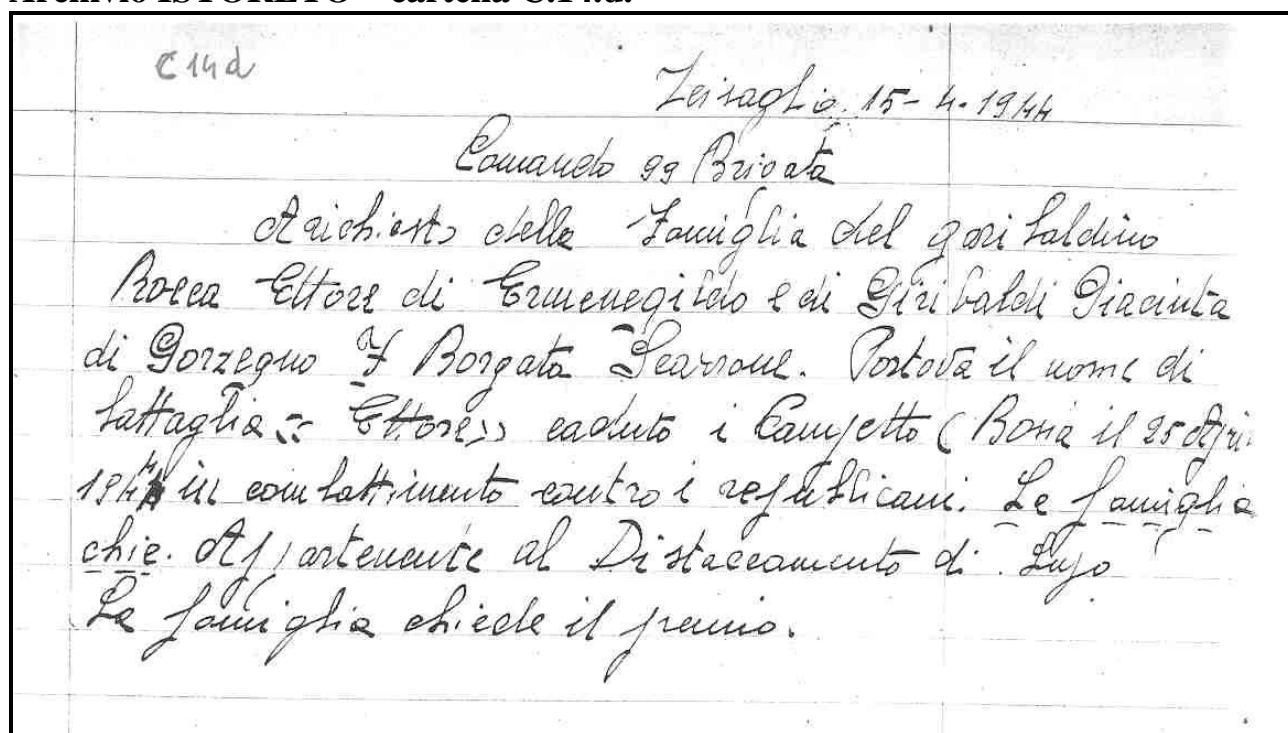 Archivio ISTORETO – cartella C.14.d.
C 14 d
15-4-1944
Comando 99 Brigata
A richiesta della Famiglia del garibaldino
Rocca Ettore di Ermenegildo e di Giribaldi Giacinta
di Gorzegno F Borgata Scarrone. Portava il nome di
battaglia = Ettore >> caduto i Campetto ( Bosia il 25 Apri
1944 in combattimento contro i repubblicani. La famiglia
chie. Appartenente al Distaccamento di Lupo
La famiglia chiede il premio.